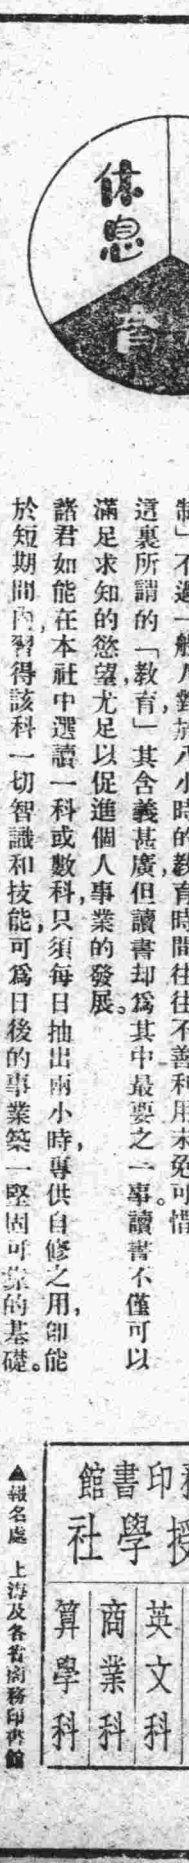 休息
育
制」不過一般人對於八小時的教育時間,往往不善利用未免可惜。
這裏所謂的「教育」其含義甚廣但讀書却爲其中最要之一事讀書不僅可以
滿足求知的慾望,尤足以促進個人事業的發展。
諸君如能在本社中選讀一科或數科,只須每日抽出兩小時,專供自修之用,即能
於短期間內,習得該科一切智識和技能,可爲日後的事業築一堅固可靠的基礎。
務印書館
授學社
英文科
商業科
算學科
▲報名處 上海及各省商務印書館